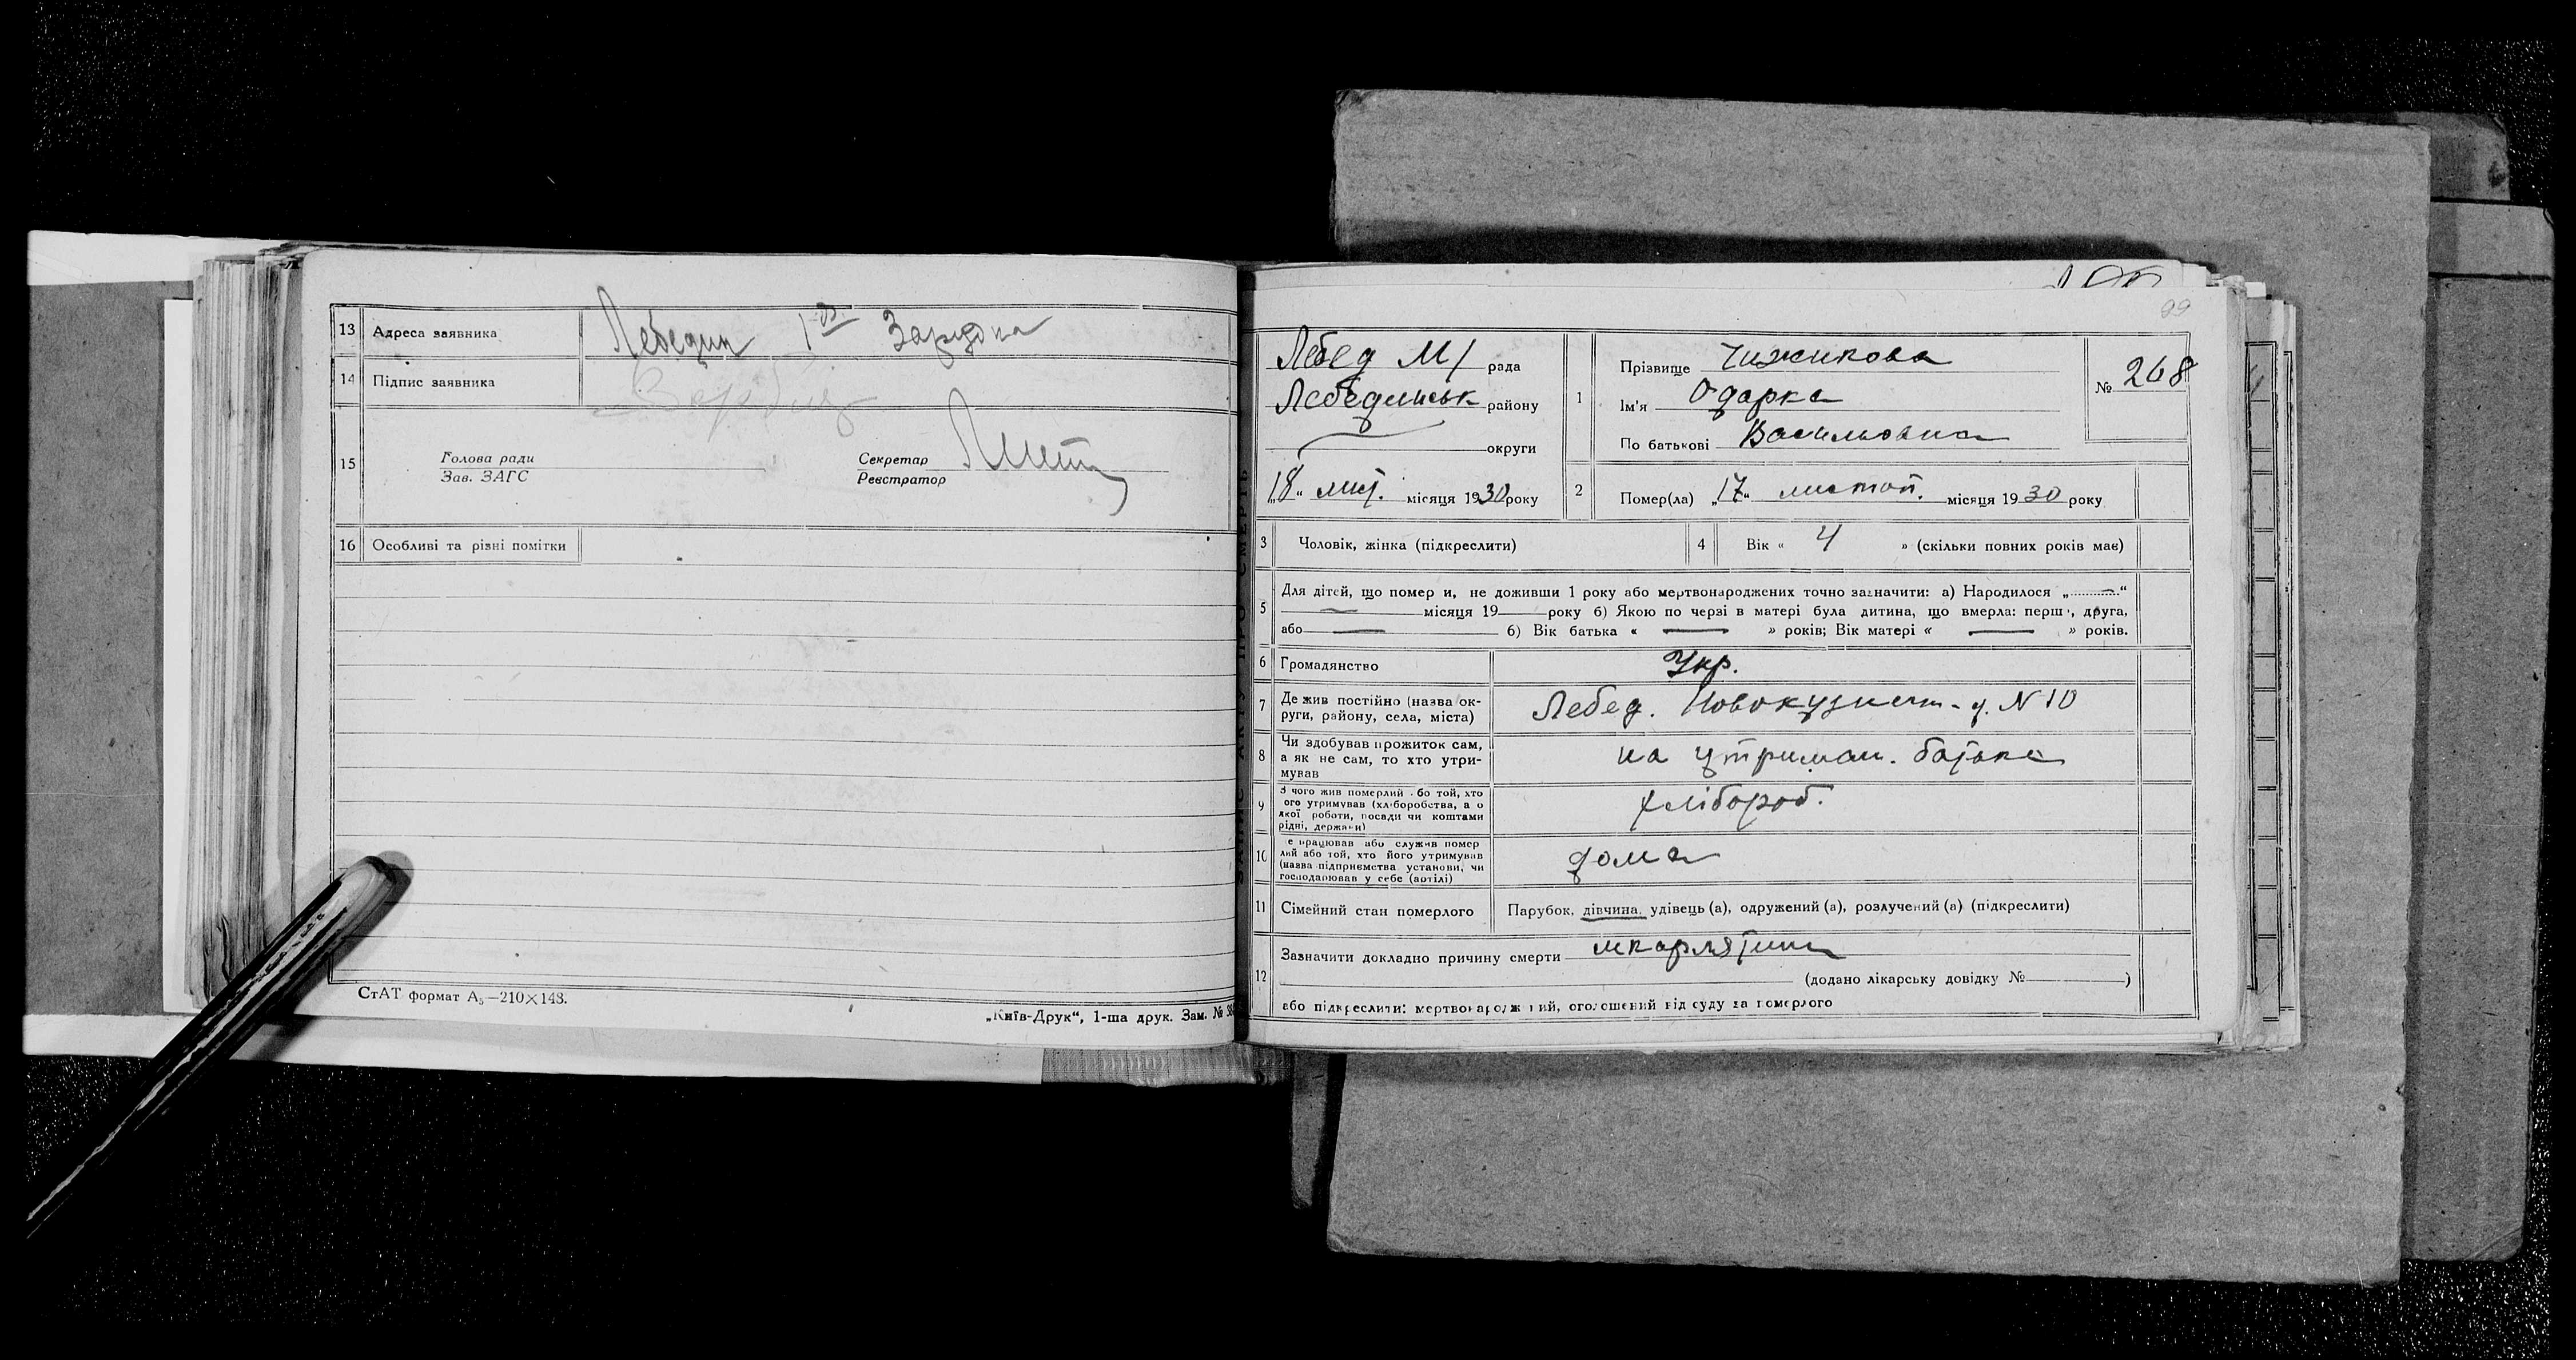 13 Адреса заявника Лебедин 1ая Зарудка
14 Підпис заявника
15 Голова ради Секретар
Зав. ЗАГС Реєстратор
16 Особливі та різні помітки
СтАТ формат А5—210×148.
„Київ-Друк“, 1-ша друк. Зам. №
99
Лебед М/ рада
Лебединськ району
округи
„18“ лист. місяця 1930 року
1 Прізвище Чижикова
Ім'я Одарка
По батькові Васильовна
№ 268
2 Помер(ла) „17“ листоп. місяця 1930 року
3 Чоловік, жінка (підкреслити) 4 Вік « 4 » (скільки повних років має)
5 Для дітей, що помер и, не доживши 1 року або мертвонароджених точно зазначити: а) Народилося „—“
— місяця 19 року б) Якою по черзі в матері була дитина, що вмерла: перш , друга,
або — 6) Вік батька « — » років; Вік матері « — » років.
6 Громадянство Укр.
7 Де жив постійно (назва ок-
руги, району, села, міста) Лебед. Новокузнечн-у. N 10
8 Чи здобував прожиток сам,
а як не сам, то хто утри-
мував на утриман. батька
9 З чого жив померлий бо той, хто
ого утримував (хліборобства, а о
якої роботи, посади чи коштами
рідні, держави) хлібороб.
10 е працював або служив помер
лий або той, хто його утримував
(назва підприємства установи, чи
господарював у себе (артілі) дома
11 Сімейний стан померлого Парубок, дівчина, удівець (а), одружений (а), розлучений (а) (підкреслити)
12 Зазначити докладно причину смерти шкарлятина
(додано лікарську довідку № )
або підкреслити: мертвонародж ний, оголошений від суду за померлого